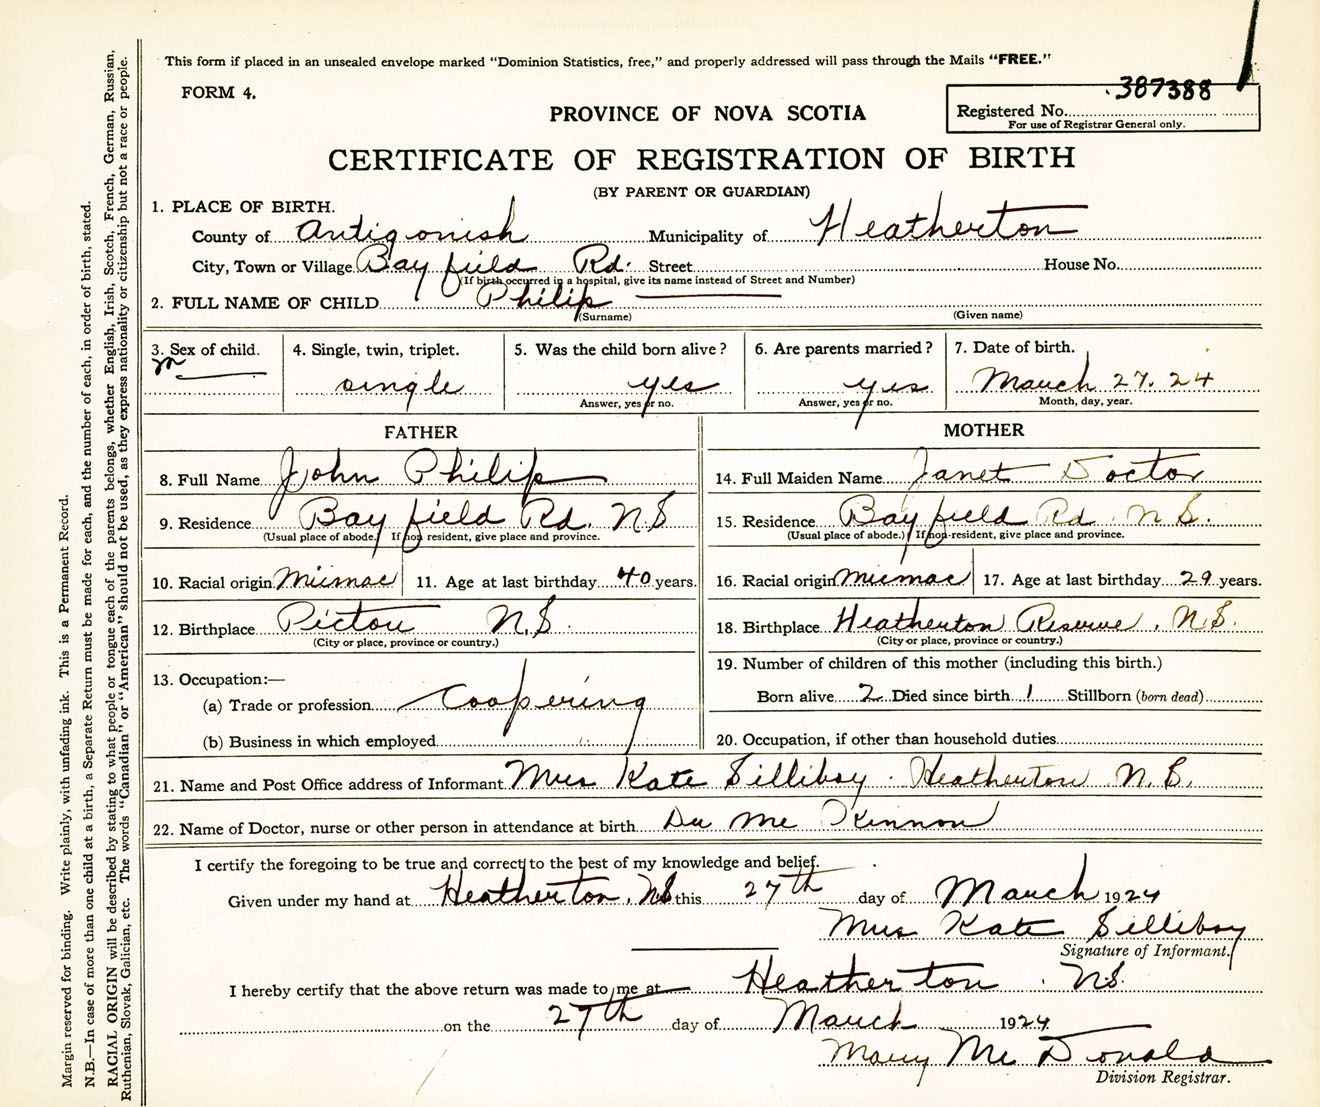 This form if placed in an unsealed envelope marked "Dominion Statistics, free," and properly addressed will pass through the Mails "FREE."
FORM 4.
387388
PROVINCE OF NOVA SCOTIA
Registered No.
For use of Registrar General only.
CERTIFICATE OF REGISTRATION OF BIRTH
(BY PARENT OR GUARDIAN)
1. PLACE OF BIRTH.
County of Antigonish Municipality of Heatherton
City, Town or Village Bayfield Rd. Street House No.
(If birth occurred in a hospital, give its name instead of Street and Number)
2. FULL NAME OF CHILD Philip
(Surname) (Given name)
3. Sex of child. 4. Single, twin, triplet. 5. Was the child born alive? 6. Are parents married? 7. Date of birth.
M single yes yes March 27. 24
Answer, yes or no. Answer, yes or no. Month, day, year.
FATHER MOTHER
8. Full Name John Philip 14. Full Maiden Name Janet Doctor
9. Residence Bayfield Rd. NS 15. Residence Bayfield Rd. N S.
(Usual place of abode.) If non resident, give place and province. (Usual place of abode.) If non-resident, give place and province.
10. Racial origin Micmac 11. Age at last birthday 40 years. 16. Racial origin Micmac 17. Age at last birthday 29 years.
12. Birthplace Pictou N.S. 18. Birthplace Heatherton Reserve, N.S.
(City or place, province or country.) (City or place, province or country.)
13. Occupation:— 19. Number of children of this mother (including this birth.)
(a) Trade or profession Coopering Born alive 2 Died since birth 1 Stillborn (born dead)
(b) Business in which employed 20. Occupation, if other than household duties
21. Name and Post Office address of Informant Mrs Kate Silliboy. Heatherton N.S.
22. Name of Doctor, nurse or other person in attendance at birth Dr Mc Kinnon
I certify the foregoing to be true and correct to the best of my knowledge and belief.
Given under my hand at Heatherton, NS this 27th day of March 1924
Mrs Kate Silliboy
Signature of Informant.
I hereby certify that the above return was made to me at Heatherton. NS.
on the 27th day of March 1924
Mary Mc Donald
Division Registrar.
Margin reserved for binding. Write plainly, with unfading ink. This is a Permanent Record.
N.B.—In case of more than one child at a birth, a Separate Return must be made for each, and the number of each, in order of birth, stated.
RACIAL ORIGIN will be described by stating to what people or tongue each of the parents belongs, whether English, Irish, Scotch, French, German, Russian,
Ruthenian, Slovak, Galician, etc. The words "Canadian" or "American" should not be used, as they express nationality or citizenship but not a race or people.